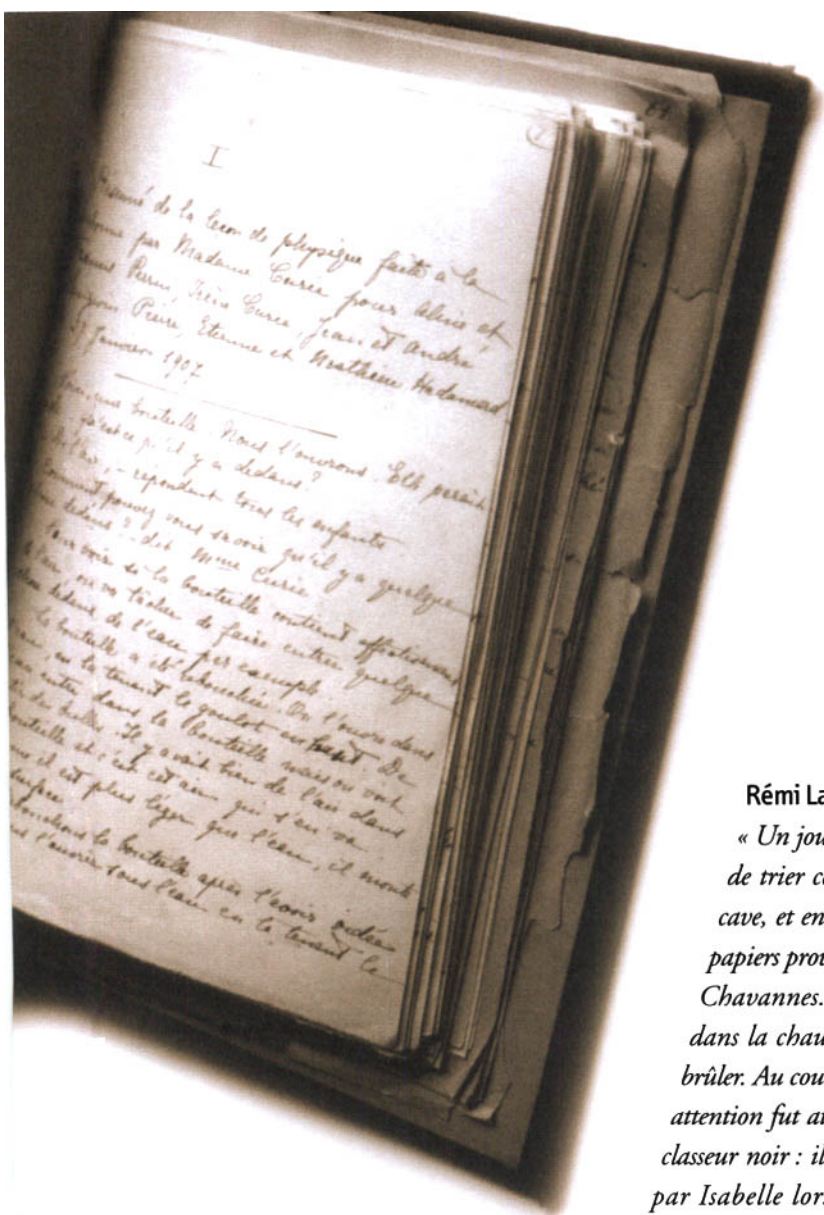 I
Résumé de la leçon de physique faite à la
par Madame Curie pour Aline et
Perrin, Irène Curie, Jean et André
Pierre, Etienne et Mathieu Hadamard
Janvier 1907
une bouteille. Nous l'ouvrons. Elle paraît
qu'est ce qu'il y a dedans?
de l'air, - répondent tous les enfants
Comment pouvez vous savoir qu'il y a quelque
dedans? - dit Mme Curie
Pour voir si la bouteille contient effectivement
on va tâcher de faire entrer quelque
dedans de l'eau par exemple.
La bouteille a été débouchée. On l'ouvre dans
l'eau, en la tenant le goulot en haut. De
entre dans la bouteille mais on voit
des bulles. Il y avait bien de l'air dans
bouteille et c'est cet air qui s'en va.
il est plus léger que l'eau, il monte
surface.
la bouteille après l'avoir vidée
l'ouvrir sous l'eau en la tenant le
Rémi La
« Un jou
de trier c
cave, et en
papiers prov
Chavannes.
dans la chau
brûler. Au cou
attention fut a
classeur noir : il
par Isabelle lor